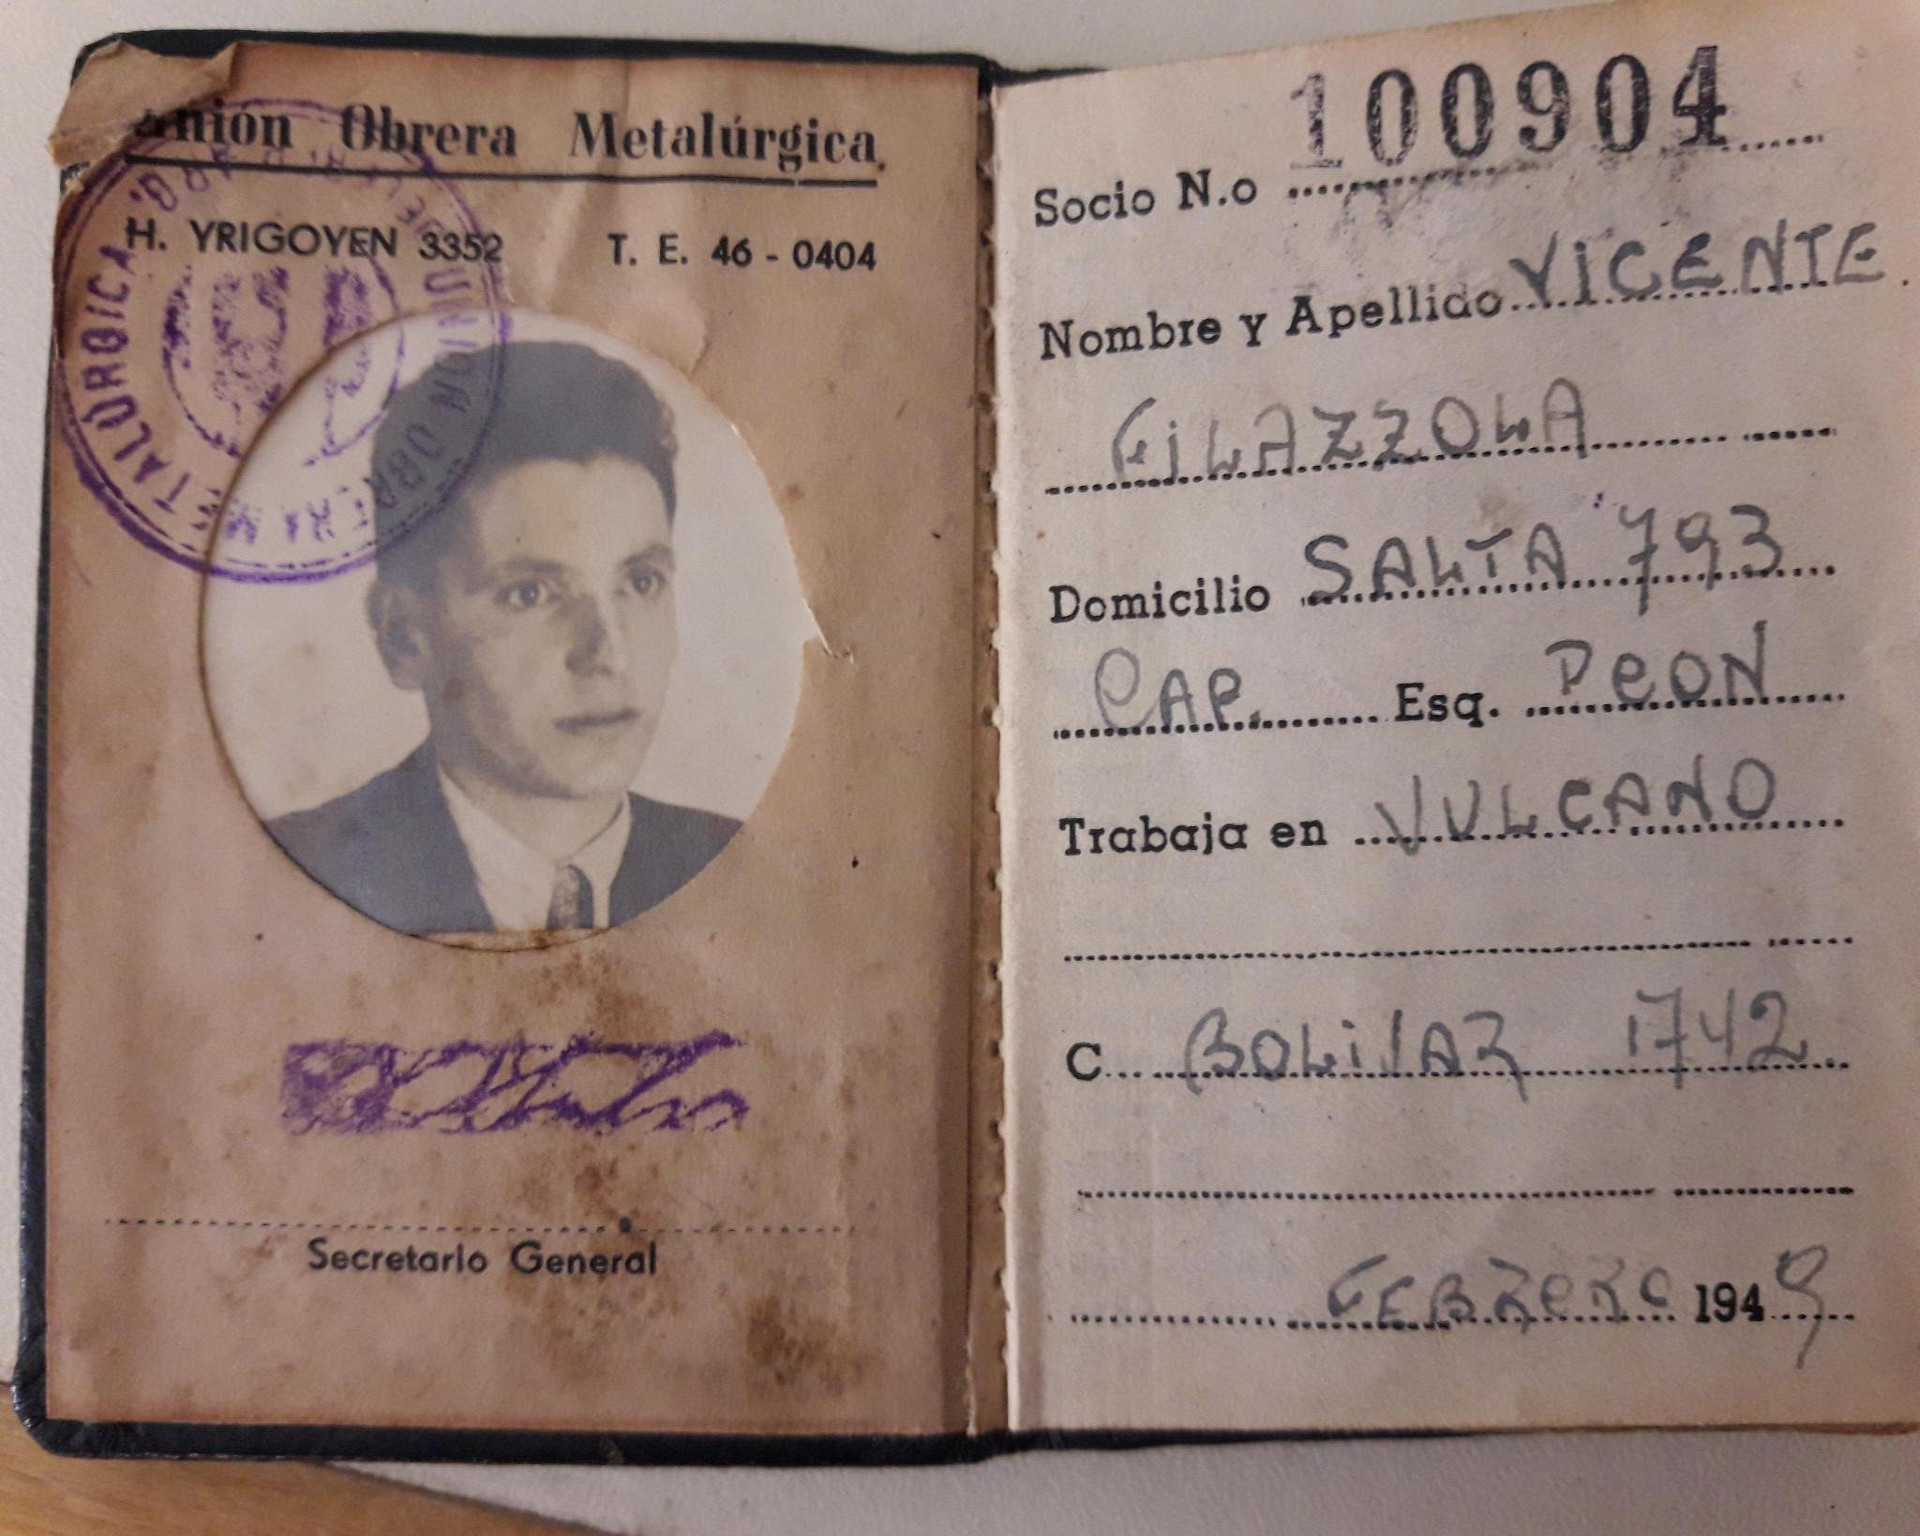 Unión Obrera Metalúrgica
H. YRIGOYEN 3352 T. E. 46 - 0404
UNION OBRERA METALÚRGICA
Secretario General
Socio N.o 100904
Nombre y Apellido VICENTE
FILAZZOLA
Domicilio SALTA 793
CAP. Esq. PEON
Trabaja en VULCANO
C... BOLIVAR 1742
FEBRERO 1949